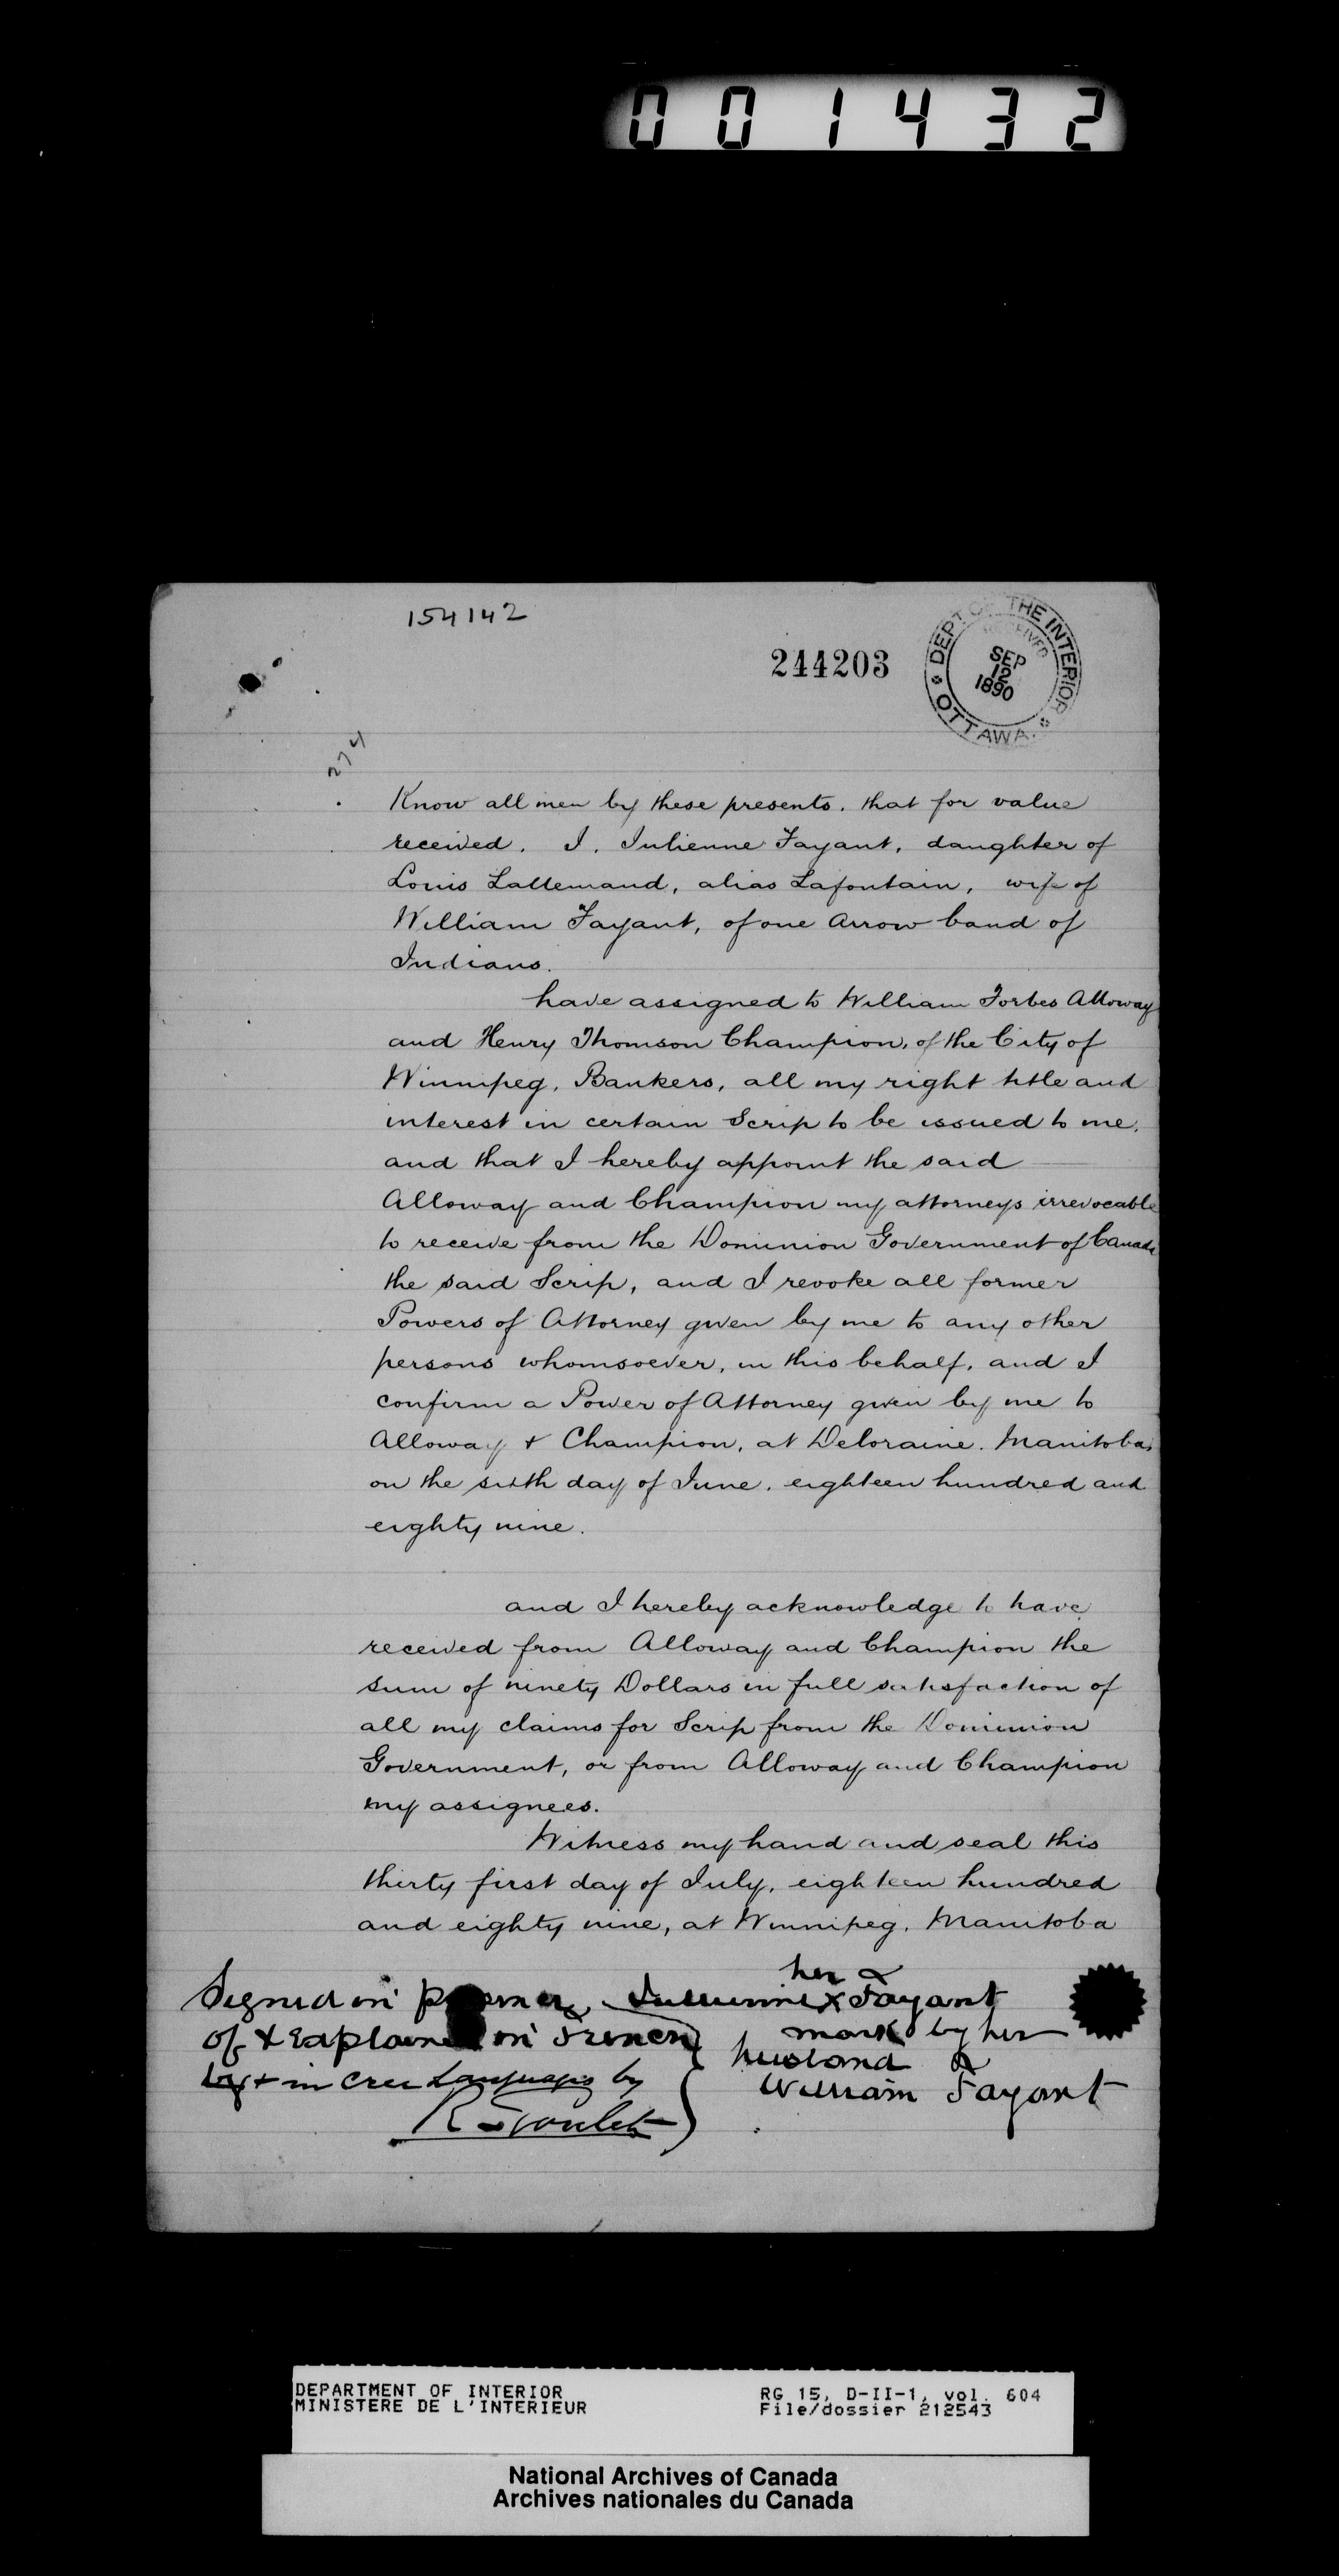 001432
154142
244203
DEPT. OF THE INTERIOR
RECEIVED
SEP
12
1890
OTTAWA.
274
Know all men by these presents. that for value
received. I. Julienne Fayant, daughter of
Louis Lallemand, alias Lafontain, wife of
William Fayant, of one Arrow band of
Indians.
have assigned to William Forbes Alloway
and Henry Thomson Champion, of the City of
Winnipeg, Bankers, all my right title and
interest in certain Scrip to be issued to me.
and that I hereby appoint the said
Alloway and Champion my attorneys irrevocable
to receive from the Dominion Government of Canada
the said Scrip, and I revoke all former
Powers of Attorney given by me to any other
persons whomsoever, in this behalf, and I
confirm a Power of Attorney given by me to
Alloway & Champion, at Deloraine. Manitoba,
on the sixth day of June. eighteen hundred and
eighty nine.
and I hereby acknowledge to have
received from Alloway and Champion the
sum of ninety Dollars in full satisfaction of
all my claims for Scrip from the Dominion
Government, or from Alloway and Champion
my assignees.
Witness my hand and seal this
thirty first day of July, eighteen hundred
and eighty nine, at Winnipeg, Manitoba
her &
Signed in Julienne X Fayant
of & Explained in French mark by her
husband &
by & in Cree Language by William Fayant
R Goulet
DEPARTMENT OF INTERIOR RG 15, D-II-1, vol. 604
MINISTERE DE L'INTERIEUR File/dossier 212543
National Archives of Canada
Archives nationales du Canada